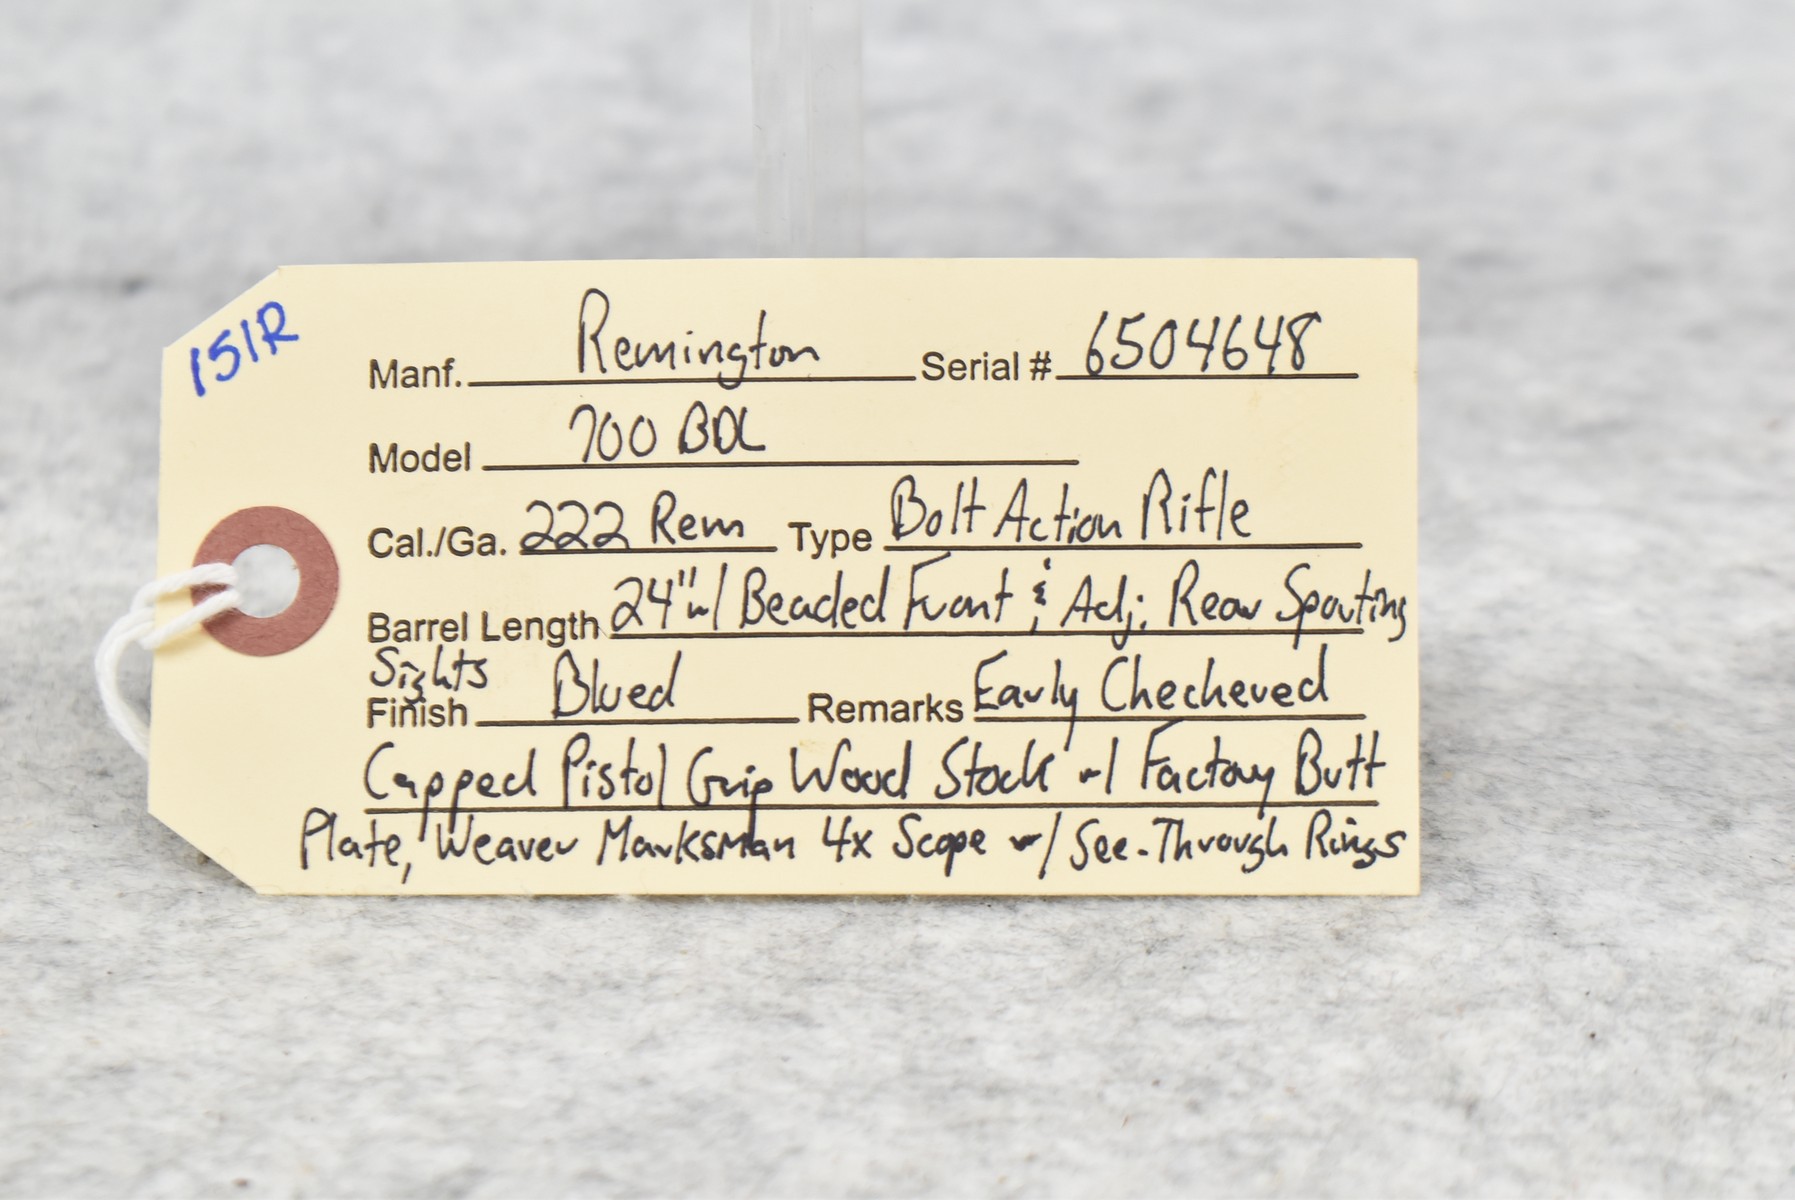 151R
Manf. Remington Serial # 6504648
Model 700 BDL
Cal./Ga. 222 Rem Type Bolt Action Rifle
Barrel Length 24" w/ Beaded Front & Adj. Rear Sporting
Sights
Finish Blued Remarks Early Checkered
Capped Pistol Grip Wood Stock w/ Factory Butt
Plate, Weaver Marksman 4x Scope w/ See-Through Rings